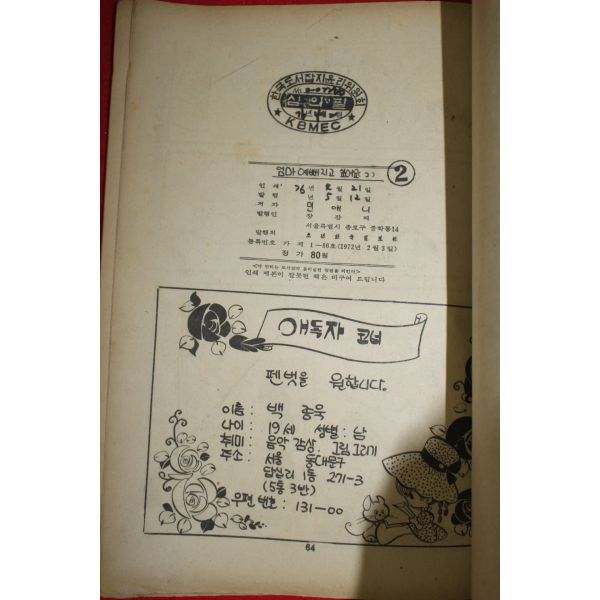 한국도서잡지윤리위원회
심의필
KBMEC
엄마 예뻐지고 싶어요 2
2
인쇄 76년 2월 21일
발행 년 5월 12일
저자 민애니
발행인 장
서울특별시 종로구 중학동 14
발행처 소년한국일보社
등록번호 가 제 1-86호(1972년 2월 3일)
정가 80원
인쇄 제본이 잘못된 책은 바꾸어 드립니다
애독자 코너
펜벗을 원합니다.
이름 : 백 종욱
나이 : 19세 성별 : 남
취미 : 음악 감상. 그림 그리기
주소 : 서울 동대문구
답십리 1동 271-3
(5통 3반)
우편 번호 : 131-00
64